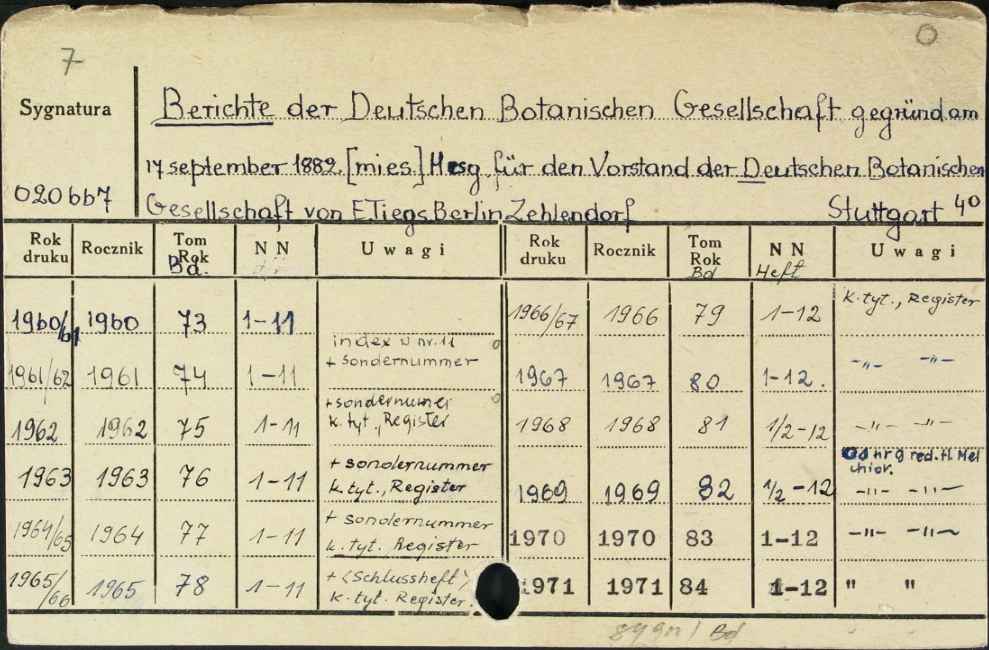 7
0
Sygnatura
Berichte der Deutschen Botanischen Gesellschaft gegründ am
17 september 1882. [mies.] Hrsg. für den Vorstand der Deutschen Botanischen
020667
Gesellschaft von E Tiegs Berlin Zehlendorf Stuttgart 40
Rok druku Rocznik Tom Rok Bd. N N Uwagi Rok druku Rocznik Tom Rok Bd N N Heft Uwagi
1960/61 1960 73 1-11 1966/67 1966 79 1-12 k. tyt., Register
index w nr. 11
1961/62 1961 74 1-11 + sondernummer 1967 1967 80 1-12. -"- -"-
1962 1962 75 1-11 + sondernumer k. tyt., Register 1968 1968 81 1/2-12 -"- -"-
Od nr 9 red. H. Mel
chior.
1963 1963 76 1-11 + sondernummer k. tyt., Register 1969 1969 82 1/2-12 -"- -"-
1964/65 1964 77 1-11 + sondernummer k. tyt. Register 1970 1970 83 1-12 -"- -"-
1965/66 1965 78 1-11 + (Schlussheft) k. tyt. Register. 1971 1971 84 1-12 " "
Bd